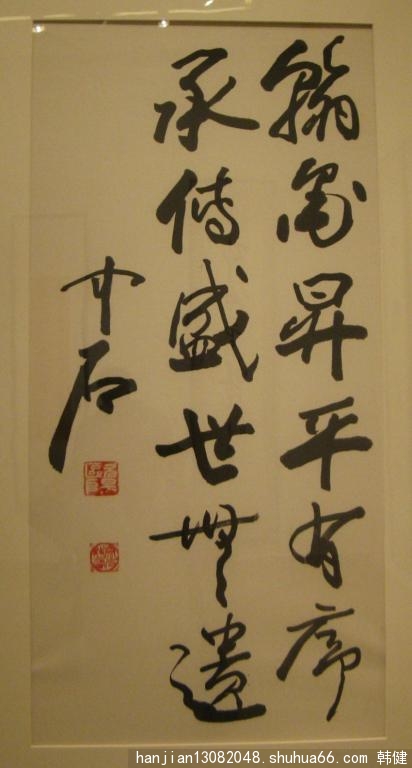 翰墨昇平有序
承傳盛世無遺
中石
hanjian13082048.shuhua66.com 韩健